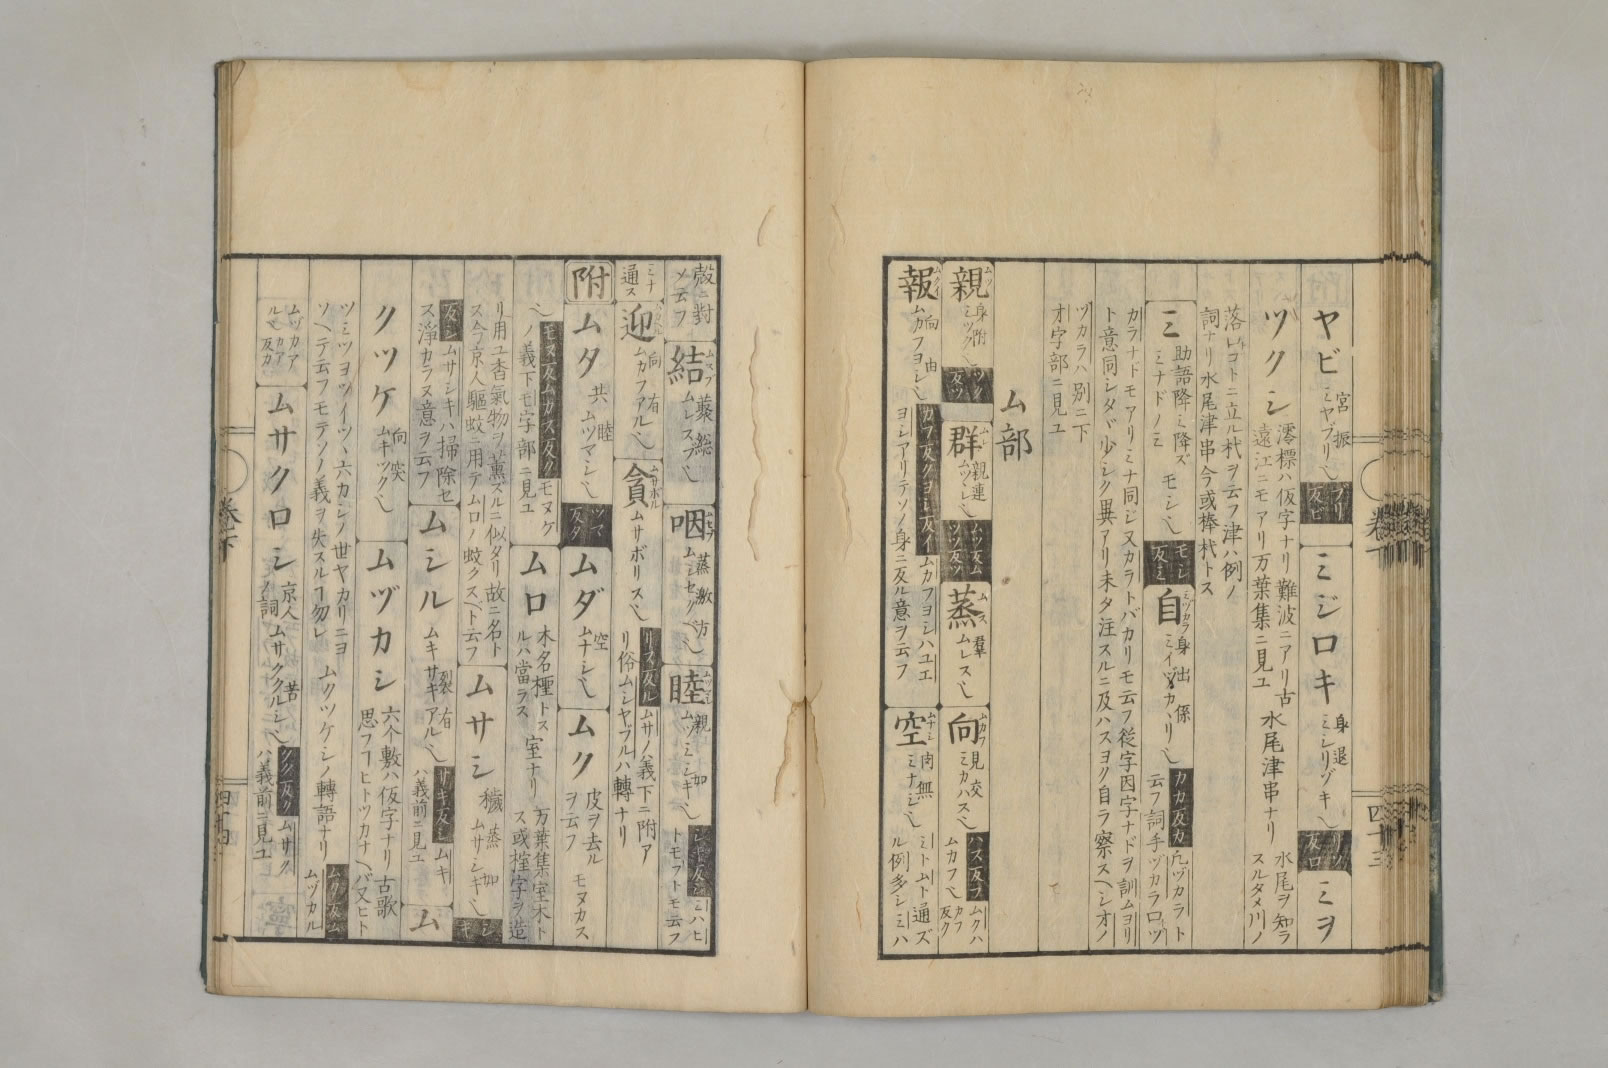 ヤビ 宮振 ミヤブリ也 ブリ反ビ ミジロキ 身退 ミシリゾキ也 リゾ反ロ ミヲ
ツクシ 澪標ハ仮字ナリ難波ニアリ古 遠江ニモアリ万葉集ニ見ユ 水尾津串ナリ 水尾ヲ知ラスルタメ川ノ
落 コトニ立ル杙ヲ云フ津ハ例ノ
詞ナリ水尾津串今或棒杙トス
ミ 助語降ミ降ズミナドノミ モシ也 モシ反ミ 自 ミヅカラ 身出係 ミイヅカヽリ也 カカ反カ 凡ヅカラト云フ詞手ヅカラ口ヅ
カラナドモアリミナ同ジ又カラトバカリモ云フ従字因字ナドヲ訓ムヨリ
ト意同シタヾ少シク異アリ未タ注スルニ及ハスヨク自ラ察スヘシオノ
ヅカラハ別ニ下
オ字部ニ見ユ
ム部
親 ムツ 身附 ミツク也 ツク反ツ 群 ムレ 親連 ムツレ也 ツム反ム ツツ反ツ 蒸 ムス 羣 ムレス也 向 ムカフ 見交 ミカハス也 ハス反フ ムクハムカフ也カフ反ク
報 ムクイ 向由 ムカフヨシ也 カフ反クヨシ反イ ムカフヨシハユエヨシアリテソノ身ニ反ル意ヲ云フ 空 ムナシ 肉無 ミナシ也 ミトムト通ズル例多シミハ
殻ニ對ソ云フ 結 ムスブ 聚総 ムレスブ也 咽 ムセブ 蒸激方 ムシセク也 睦 ムツマシ 親如 ムツミシキ也 シキ反シ ミハヒトモフトモ云フ
ミナ通ス 迎 ムカヘル 向有 ムカフアル也 貪 ムサボル ムサボリス也 リス反ル ムサノハ義下ニ附アリ俗ムシヤブルハ轉ナリ
附 ムタ 共 睦 ムツマシ也 ツマ反タ ムダ 空 ムナシ也 ムク 皮ヲ去ルヲ云フ モヌカス
也 モヌ反ムカス反ク モヌケノ義下モ字部ニ見ユ ムロ 木名種トスルハ當ラス 室ナリ 万葉集室木トス或榁字ヲ造
リ用ユ香氣物ヲ薫スルニ似タリ故ニ名トス今京人驅蚊ニ用テムロノ蚊クスベト云フ ムサシ 穢 蒸如 ムサシキ也 シキ
反シ ムサシキハ掃除セス淨カラヌ意ヲ云フ ムシル 裂有 ムキサキアル也 サキ反シ ムキハ義前ニ見ユ ム
クツケ 向突 ムキツク也 ムヅカシ 六个敷ハ仮字ナリ古歌 思フコヒトツカナヘバ又ヒト
ツミツヨツイツヽ六カシノ世ヤカリニヨソヘテ云フモテソノ義ヲ失スルヿ勿レ ムクツケシノ轉語ナリ ムク反ム ムヅカル
ムヅカアルマ カア反カ ムサクロシ 京人ノ詞 苦 ムサククルシ也 クク反ク ムサクハ義前ニ見ユ
巻下
四十三
巻下
四十四